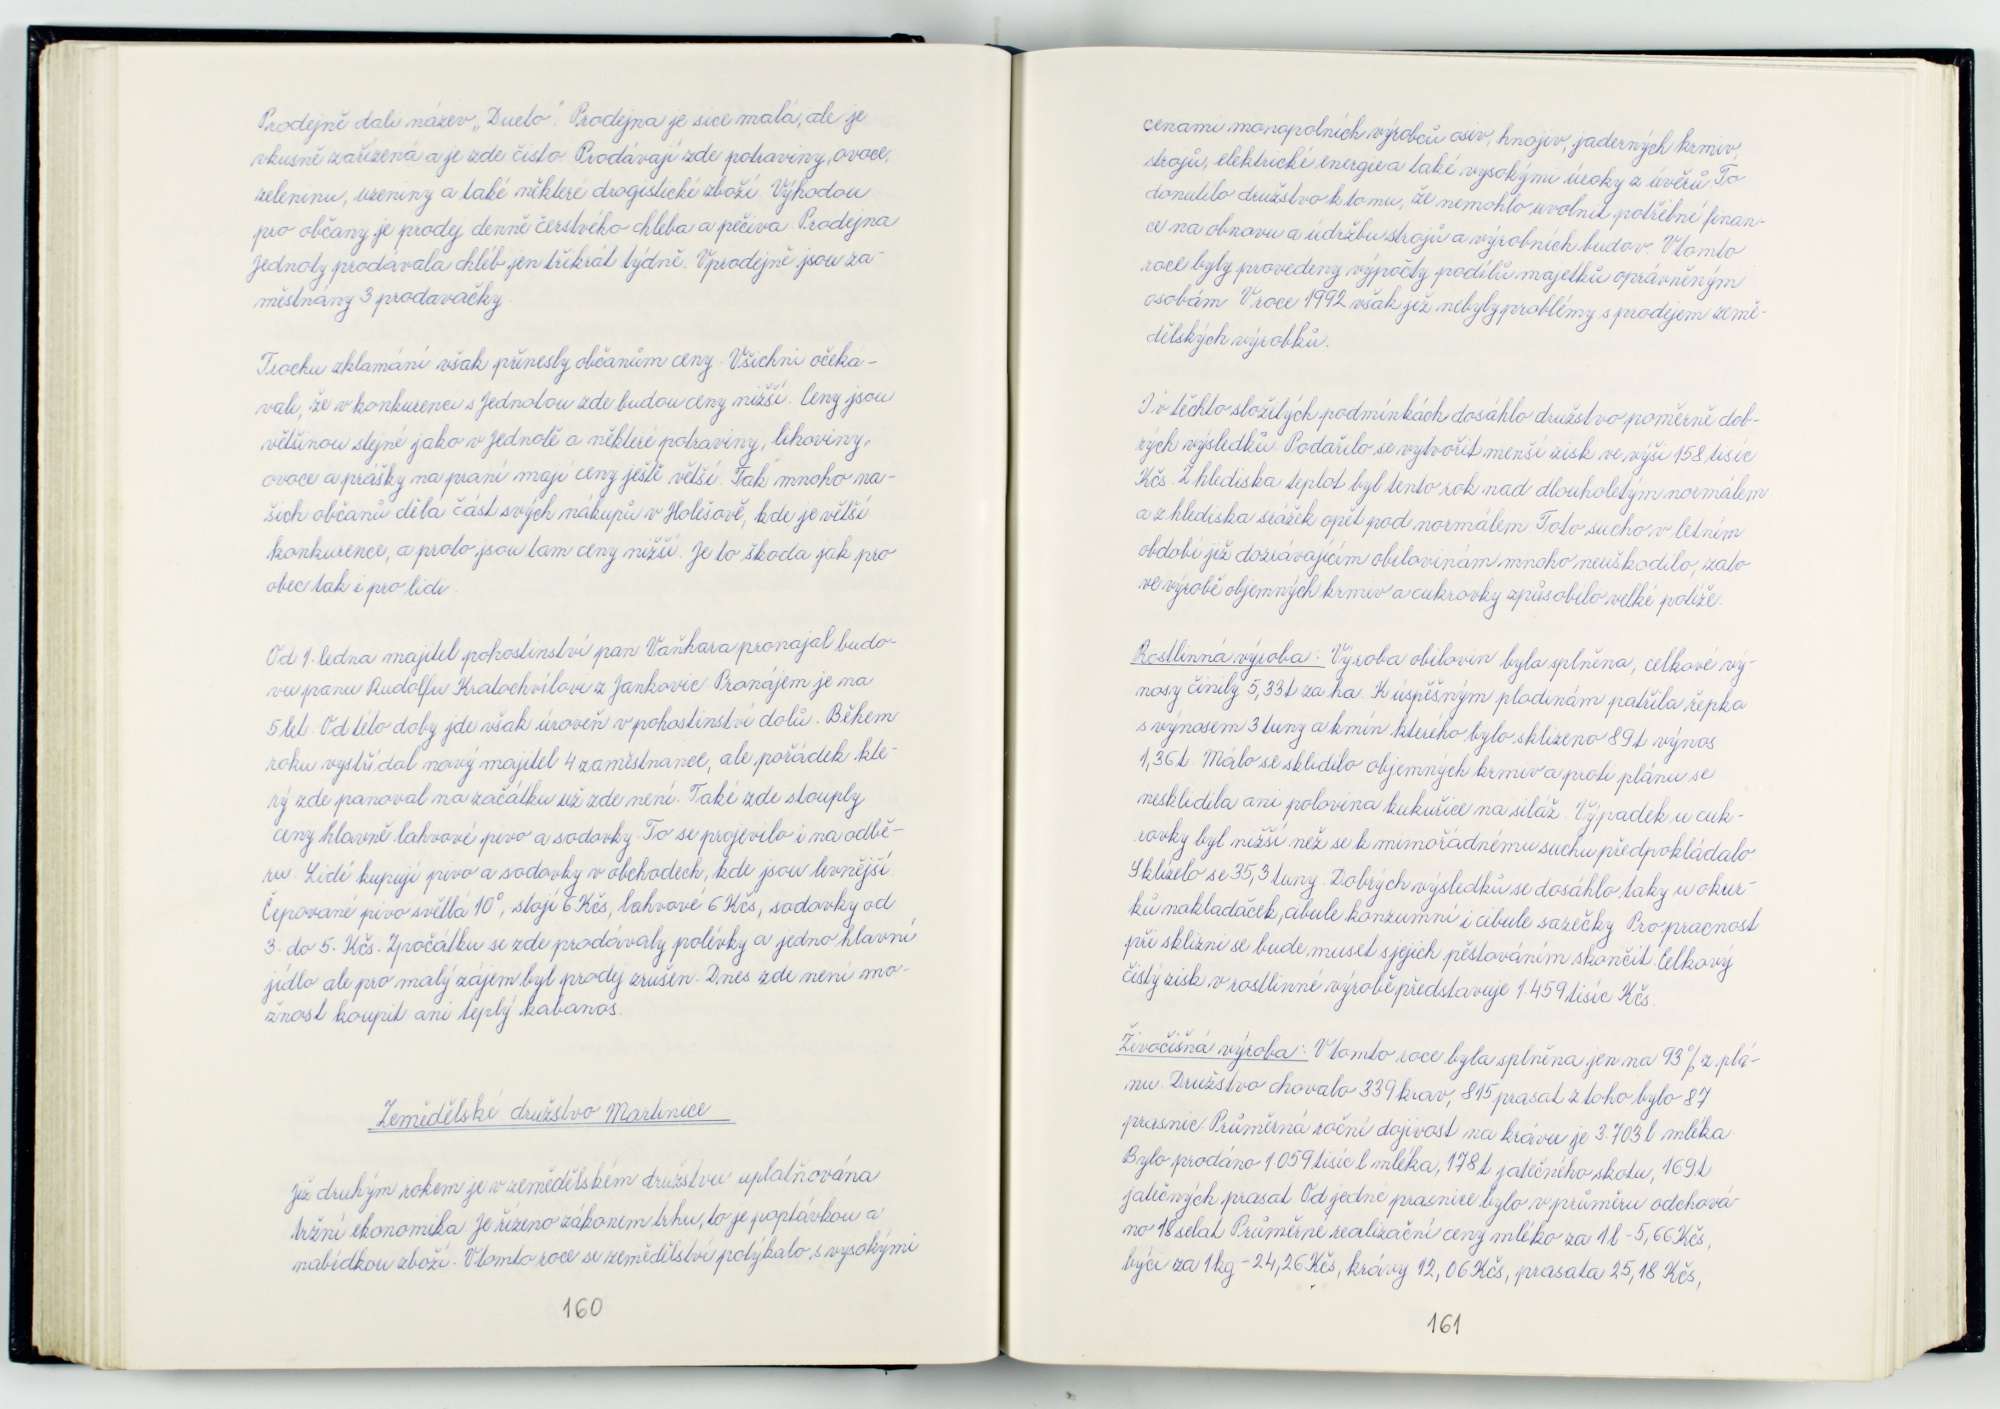 Prodejně dali název „Duelo". Prodejna je sice malá, ale je
vkusně zařízená a je zde čisto. Prodávají zde potraviny, ovoce,
zeleninu, uzeniny a také některé drogistické zboží. Výhodou
pro občany je prodej denně čerstvého chleba a pečiva. Prodejna
Jednoty prodávala chléb jen třikrát týdně. V prodejně jsou za-
městnány 3 prodavačky.
Trochu zklamání však přinesly občanům ceny. Všichni očeká-
vali, že v konkurenci s Jednotou zde budou ceny nižší. Ceny jsou
většinou stejné jako v Jednotě a některé potraviny, lihoviny,
ovoce a prášky na praní mají ceny ještě větší. Tak mnoho na-
šich občanů dělá část svých nákupů v Holešově, kde je větší
konkurence, a proto jsou tam ceny nižší. Je to škoda jak pro
obec tak i pro lidi.
Od 1. ledna majitel pohostinství pan Vaňhara pronajal budo-
vu panu Rudolfu Kratochvílovi z Jankovic. Pronájem je na
5 let. Od této doby jde však úroveň v pohostinství dolů. Během
roku vystřídal nový majitel 4 zaměstnance, ale pořádek kte-
rý zde panoval na začátku už zde není. Také zde stouply
ceny hlavně lahvové pivo a sodovky. To se projevilo i na odbě-
ru. Lidi kupují pivo a sodovky v obchodech, kde jsou levnější.
Čepované pivo světlá 10°, stojí 6 Kčs, lahvové 6 Kčs, sodovky od
3. do 5. Kčs. Zpočátku se zde prodávaly polévky a jedno hlavní
jídlo ale pro malý zájem byl prodej zrušen. Dnes zde není mo-
žnost koupit ani teplý kabanos.
Zemědělské družstvo Martinice
Již druhým rokem je v zemědělském družstvu uplatňována
tržní ekonomika. Je řízeno zákonem trhu, to je poptávkou a
nabídkou zboží. V tomto roce se zemědělství potýkalo s vysokými
160
cenami monopolních výrobců osiv, hnojiv, jaderných krmiv,
strojů, elektrické energie a také vysokými úroky z úvěrů. To
donutilo družstvo k tomu, že nemohlo uvolnit potřebné finan-
ce na obnovu a údržbu strojů a výrobních budov. V tomto
roce byly provedeny výpočty podílů majetků oprávněným
osobám. V roce 1992 však již nebyly problémy s prodejem země-
dělských výrobků.
I v těchto složitých podmínkách dosáhlo družstvo poměrně dob-
rých výsledků. Podařilo se vytvořit menší zisk ve výši 158 tisíc
Kčs. Z hlediska teplot byl tento rok nad dlouholetým normálem
a z hlediska srážek opět pod normálem. Toto sucho v letním
období již dozrávajícím obilovinám mnoho neuškodilo, zato
ve výrobě objemných krmiv a cukrovky způsobilo velké potíže.
Rostlinná výroba: Výroba obilovin byla splněna, celkové vý-
nosy činily 5,33 t za ha. K úspěšným plodinám patřila řepka
s výnosem 3 tuny a kmín kterého bylo sklizeno 89 t výnos
1,36 t. Málo se sklidilo objemných krmiv a proti plánu se
nesklidila ani polovina kukuřice na siláž. Výpadek u cuk-
rovky byl nižší než se k mimořádnému suchu předpokládalo.
Sklízelo se 35,3 tuny. Dobrých výsledků se dosáhlo taky u okur-
ků nakladáček, cibule konzumní i cibule sazečky. Pro pracnost
při sklizni se bude muset s jejich pěstováním skončit. Celkový
čistý zisk v rostlinné výrobě představuje 1.459 tisíc Kčs.
Živočišná výroba: V tomto roce byla splněna jen na 93 % z plá-
nu. Družstvo chovalo 339 krav, 815 prasat z toho bylo 87
prasnic. Průměrná roční dojivost na krávu je 3.703 l mléka.
Bylo prodáno 1 059 tisíc l mléka, 178 t jatečného skotu, 169 t
jatečných prasat. Od jedné prasnice bylo v průměru odchová-
no 18 selat. Průměrné realizační ceny mléko za 1 l - 5,66 Kčs,
býci za 1 kg - 24,26 Kčs, krávy 12,06 Kčs, prasata 25,18 Kčs,
161